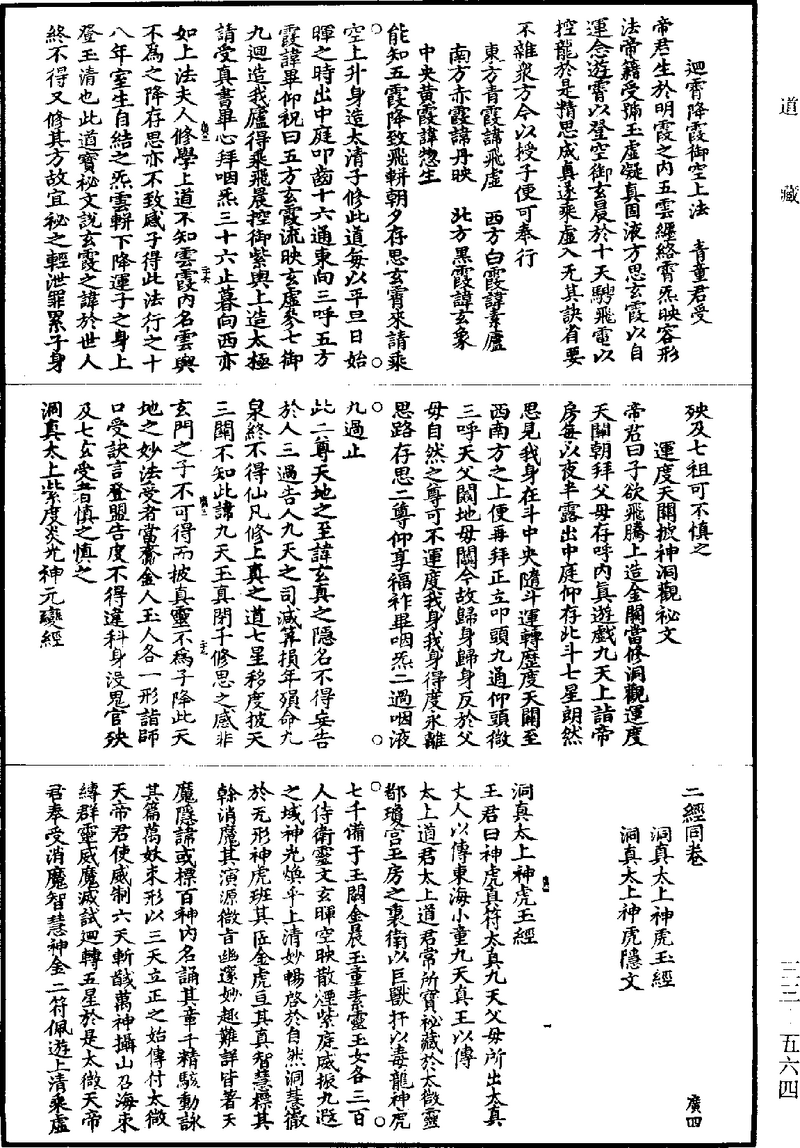 道藏
迴霄降霞御空上法　青童君受
帝君生於明霞之內五雲纏絡霄炁映容形
法帝籍受號玉虛凝真固液方思玄霞以自
運念遊霄以登空御玄晨於十天騁飛電以
控龍於是精思成真遂乘虛入无其訣省要
不雜衆方今以授子便可奉行
東方青霞諱飛虛　西方白霞諱素廬
南方赤霞諱丹映　北方黑霞諱玄象
中央黃霞諱惚生
能知五霞降致飛軿朝夕存思玄霄來請乘
空上升身造太清子修此道每以平旦日始
暉之時出中庭叩齒十六通東向三呼五方
霞諱畢仰祝曰五方玄霞流映玄虛參七御
九迴造我廬得乘飛晨控御紫輿上造太極
請受真書畢心拜咽炁三十六止暮向西亦
如上法夫人修學上道不知雲霞內名雲輿
不為之降存思亦不致感子得此法行之十
八年室生自結之炁雲軿下降運子之身上
登玉清也此道寶祕文說玄霞之諱於世人
終不得又修其方故宜祕之輕泄罪累子身
殃及七祖可不慎之
運度天關披神洞觀祕文
帝君曰子欲飛騰上造金闕當修洞觀運度
天關朝拜父母存呼內真遊戲九天上詣帝
房每以夜半露出中庭仰存北斗七星朗然
思見我身在斗中央隨斗運轉歷度天關至
西南方之上便再拜正立叩頭九過仰頭微
三呼天父閼地母闢今故歸身歸身反於父
母自然之尊可不運度我身我身得度永離
思路存思二尊仰享福祚畢咽炁二過咽液
九過止
此二尊天地之至諱玄真之隱名不得妄告
於人三過告人九天之司減筭損年殞命九
泉終不得仙凡修上真之道七星移度披天
三關不知此諱九天王真閉子修思之感非
玄門之子不可得而披真靈不為子降此天
地之妙法受者當齎金人玉人各一形詣師
口受訣言登盟告度不得違科身沒鬼官殃
及七玄受者慎之慎之
洞真太上紫度炎光神元變經
二經同卷
洞真太上神虎玉經
洞真太上神虎隱文
廣四
洞真太上神虎玉經
王君曰神虎真符太真九天父母所出太真
丈人以傳東海小童九天真王以傳
太上道君太上道君常所寶祕藏於太微靈
都瓊宮玉房之裏衛以巨獸扞以毒龍神虎
七千備于玉闕金晨玉童素靈玉女各三百
人侍衛靈文玄暉空映散煙紫庭威振九遐
之域神光煥乎上清妙暢啓於自然洞慧徹
於无形神虎班其匠金虎亘其真智慧標其
幹消魔其演源微旨幽邃妙趣難詳皆著天
魔隱諱或標百神內名誦其章千精駭動詠
其篇萬妖束形以三天立正之始傳付太微
天帝君使威制六天斬馘萬神攝山召海束
縛群靈威魔滅試迴轉五星於是太微天帝
君奉受消魔智慧神金二符佩遊上清乘虛
三三—五六四